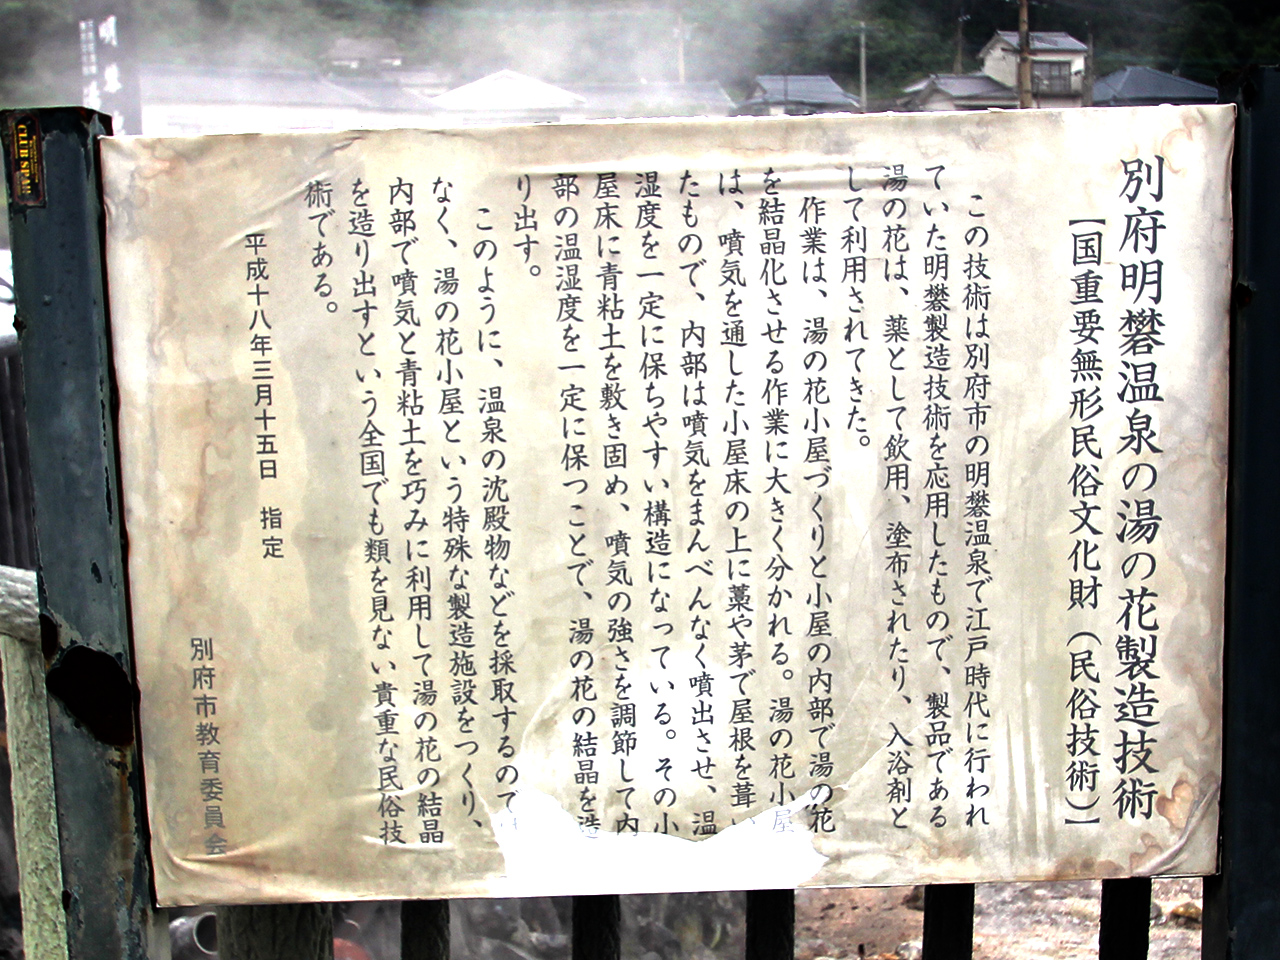 別府明礬温泉の湯の花製造技術
【国重要無形民俗文化財（民俗技術）】
この技術は別府市の明礬温泉で江戸時代に行われ
ていた明礬製造技術を応用したもので、製品である
湯の花は、薬として飲用、塗布されたり、入浴剤と
して利用されてきた。
作業は、湯の花小屋づくりと小屋の内部で湯の花
を結晶化させる作業に大きく分かれる。湯の花小屋
は、噴気を通した小屋床の上に藁や茅で屋根を葺い
たもので、内部は噴気をまんべんなく噴出させ、温
湿度を一定に保ちやすい構造になっている。その小
屋床に青粘土を敷き固め、噴気の強さを調節して内
部の温湿度を一定に保つことで、湯の花の結晶を造
り出す。
このように、温泉の沈殿物などを採取するので
なく、湯の花小屋という特殊な製造施設をつくり、
内部で噴気と青粘土を巧みに利用して湯の花の結晶
を造り出すという全国でも類を見ない貴重な民俗技
術である。
平成十八年三月十五日 指定
別府市教育委員会
CLUB SPAM